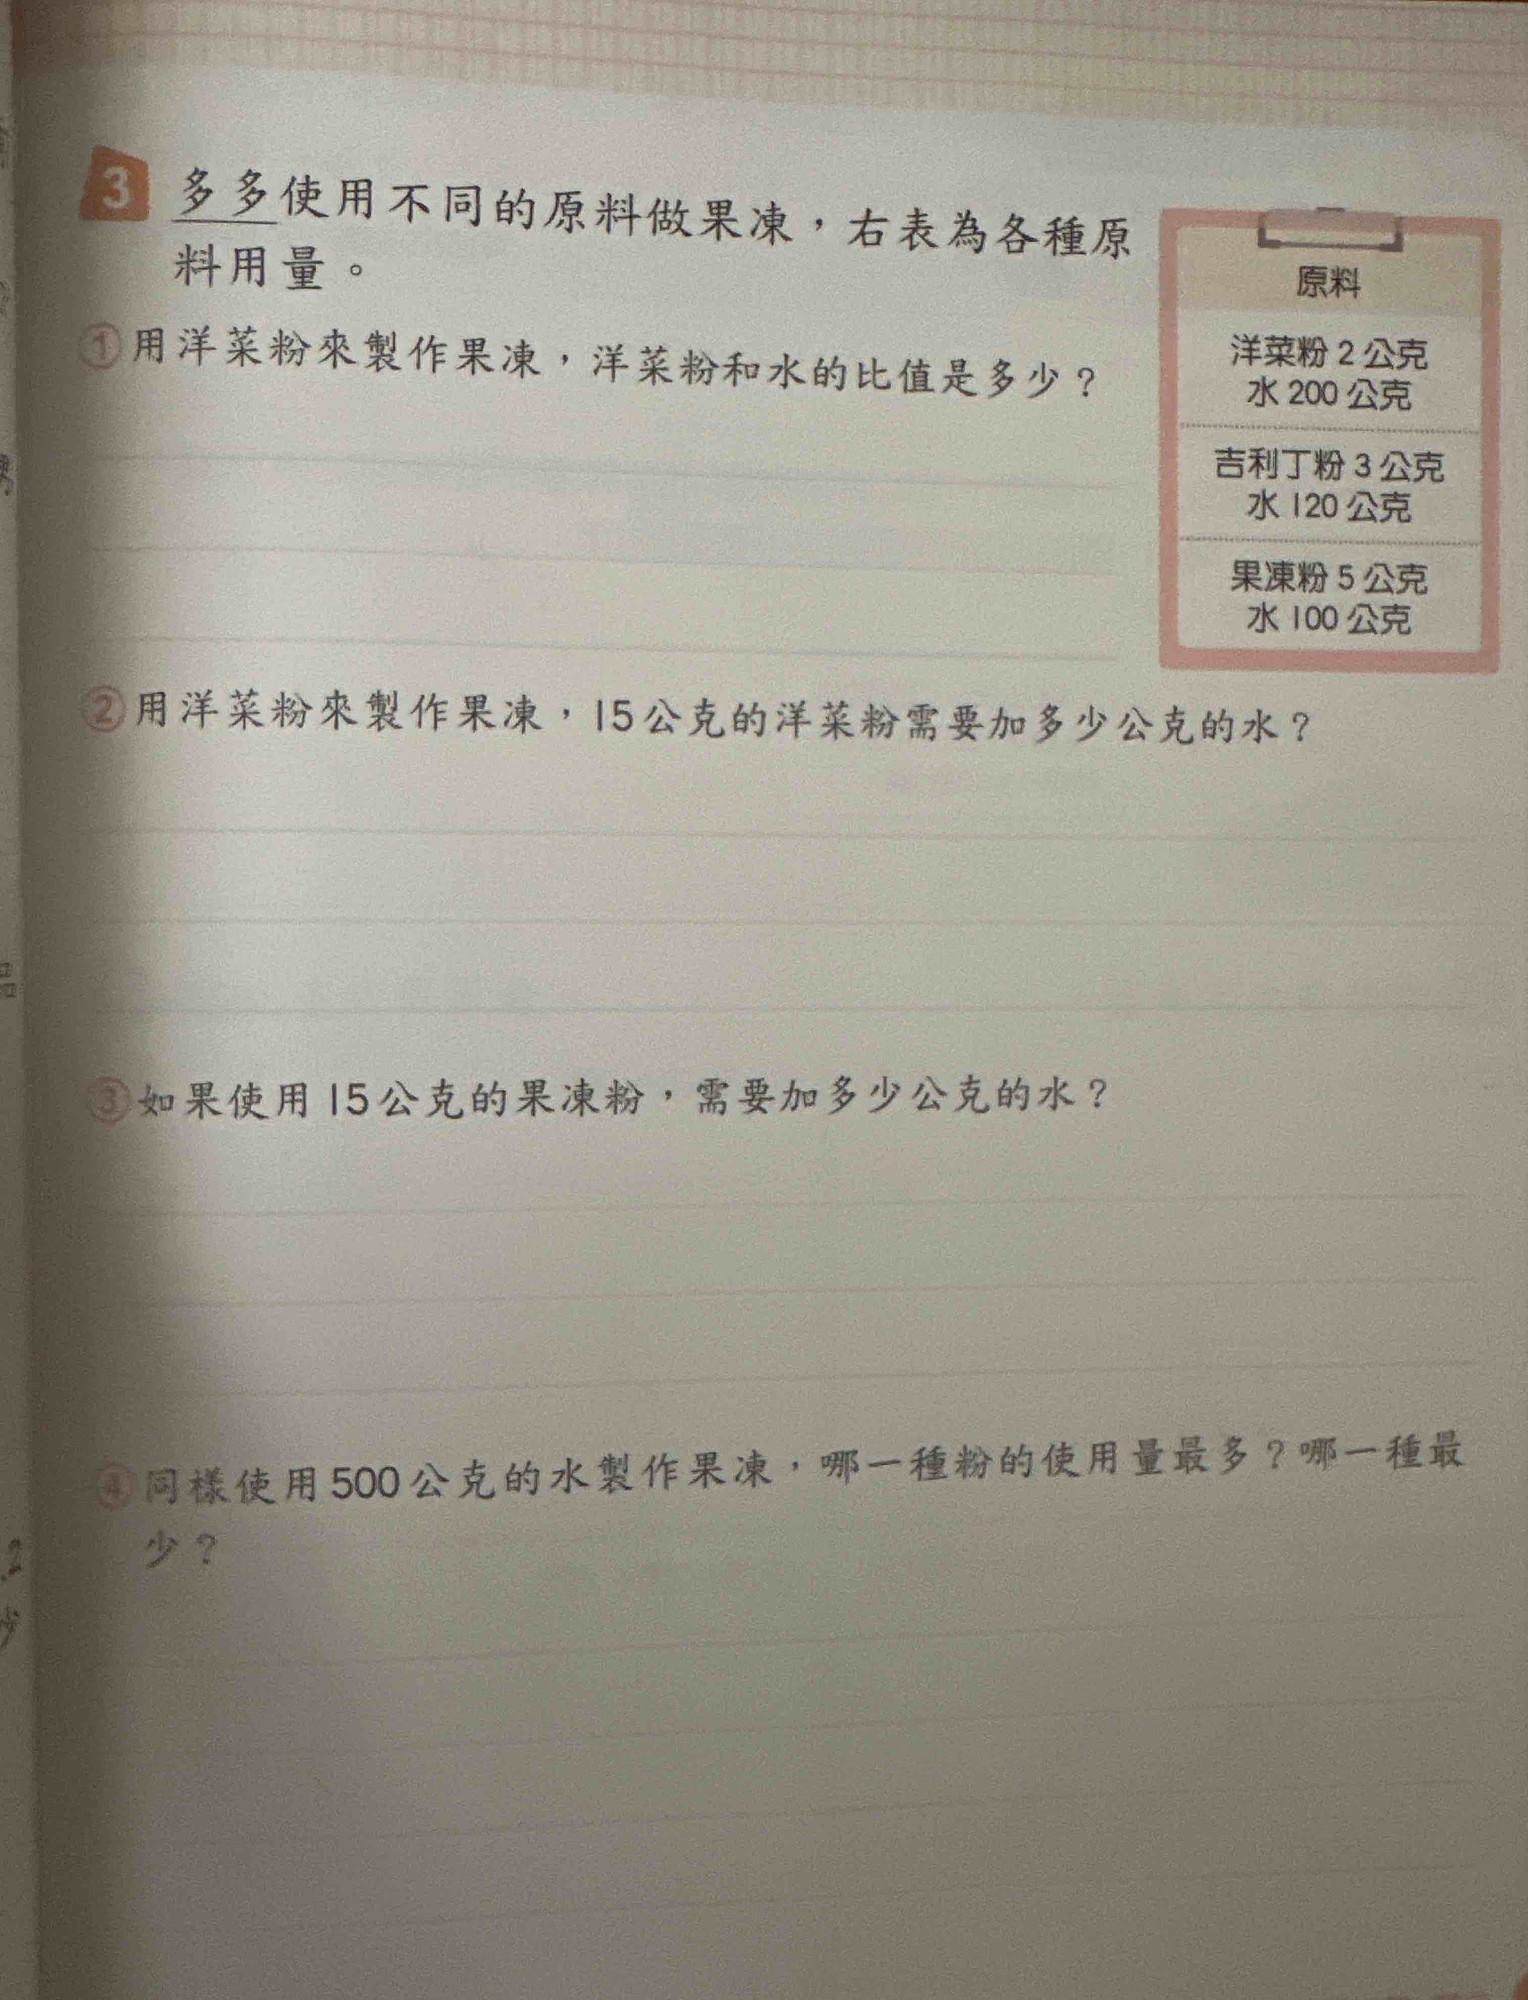 3 多多使用不同的原料做果凍，右表為各種原
料用量。
①用洋菜粉來製作果凍，洋菜粉和水的比值是多少？
原料
洋菜粉 2 公克
水 200 公克
吉利丁粉 3 公克
水 120 公克
果凍粉 5 公克
水 100 公克
②用洋菜粉來製作果凍，15公克的洋菜粉需要加多少公克的水？
③如果使用15公克的果凍粉，需要加多少公克的水？
④同樣使用500公克的水製作果凍，哪一種粉的使用量最多？哪一種最
少？